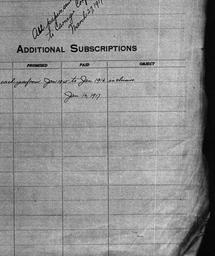 All papers sent
to Carnegie Corp
March 27, 1917
ADDITIONAL SUBSCRIPTIONS
PROMISED PAID OBJECT
each year from Jan 1915 to Jan 1916 inclusive
Jan 13, 1917